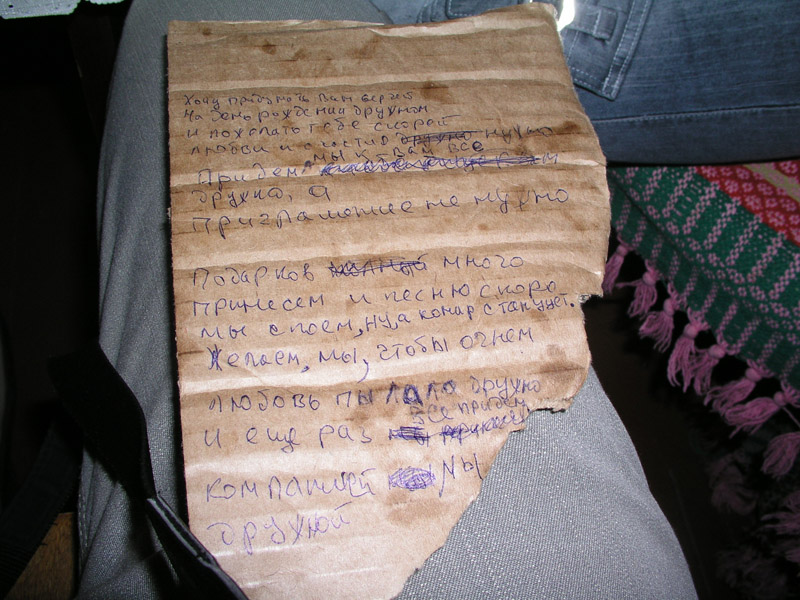 Хочу придумать Вам верей
На день рождения дружном
и пожелать тебе скорей
любви и счастия дружно нужно
мы к Вам все
Придем м
дружно, а
Приглашение не нужно
Подарков много
принесем и песню скоро
мы споем, ну, а комар станцует.
Желаем, мы, чтобы огнем
любовь пылала дружно
все придем
и еще раз
компанией мы
дружной